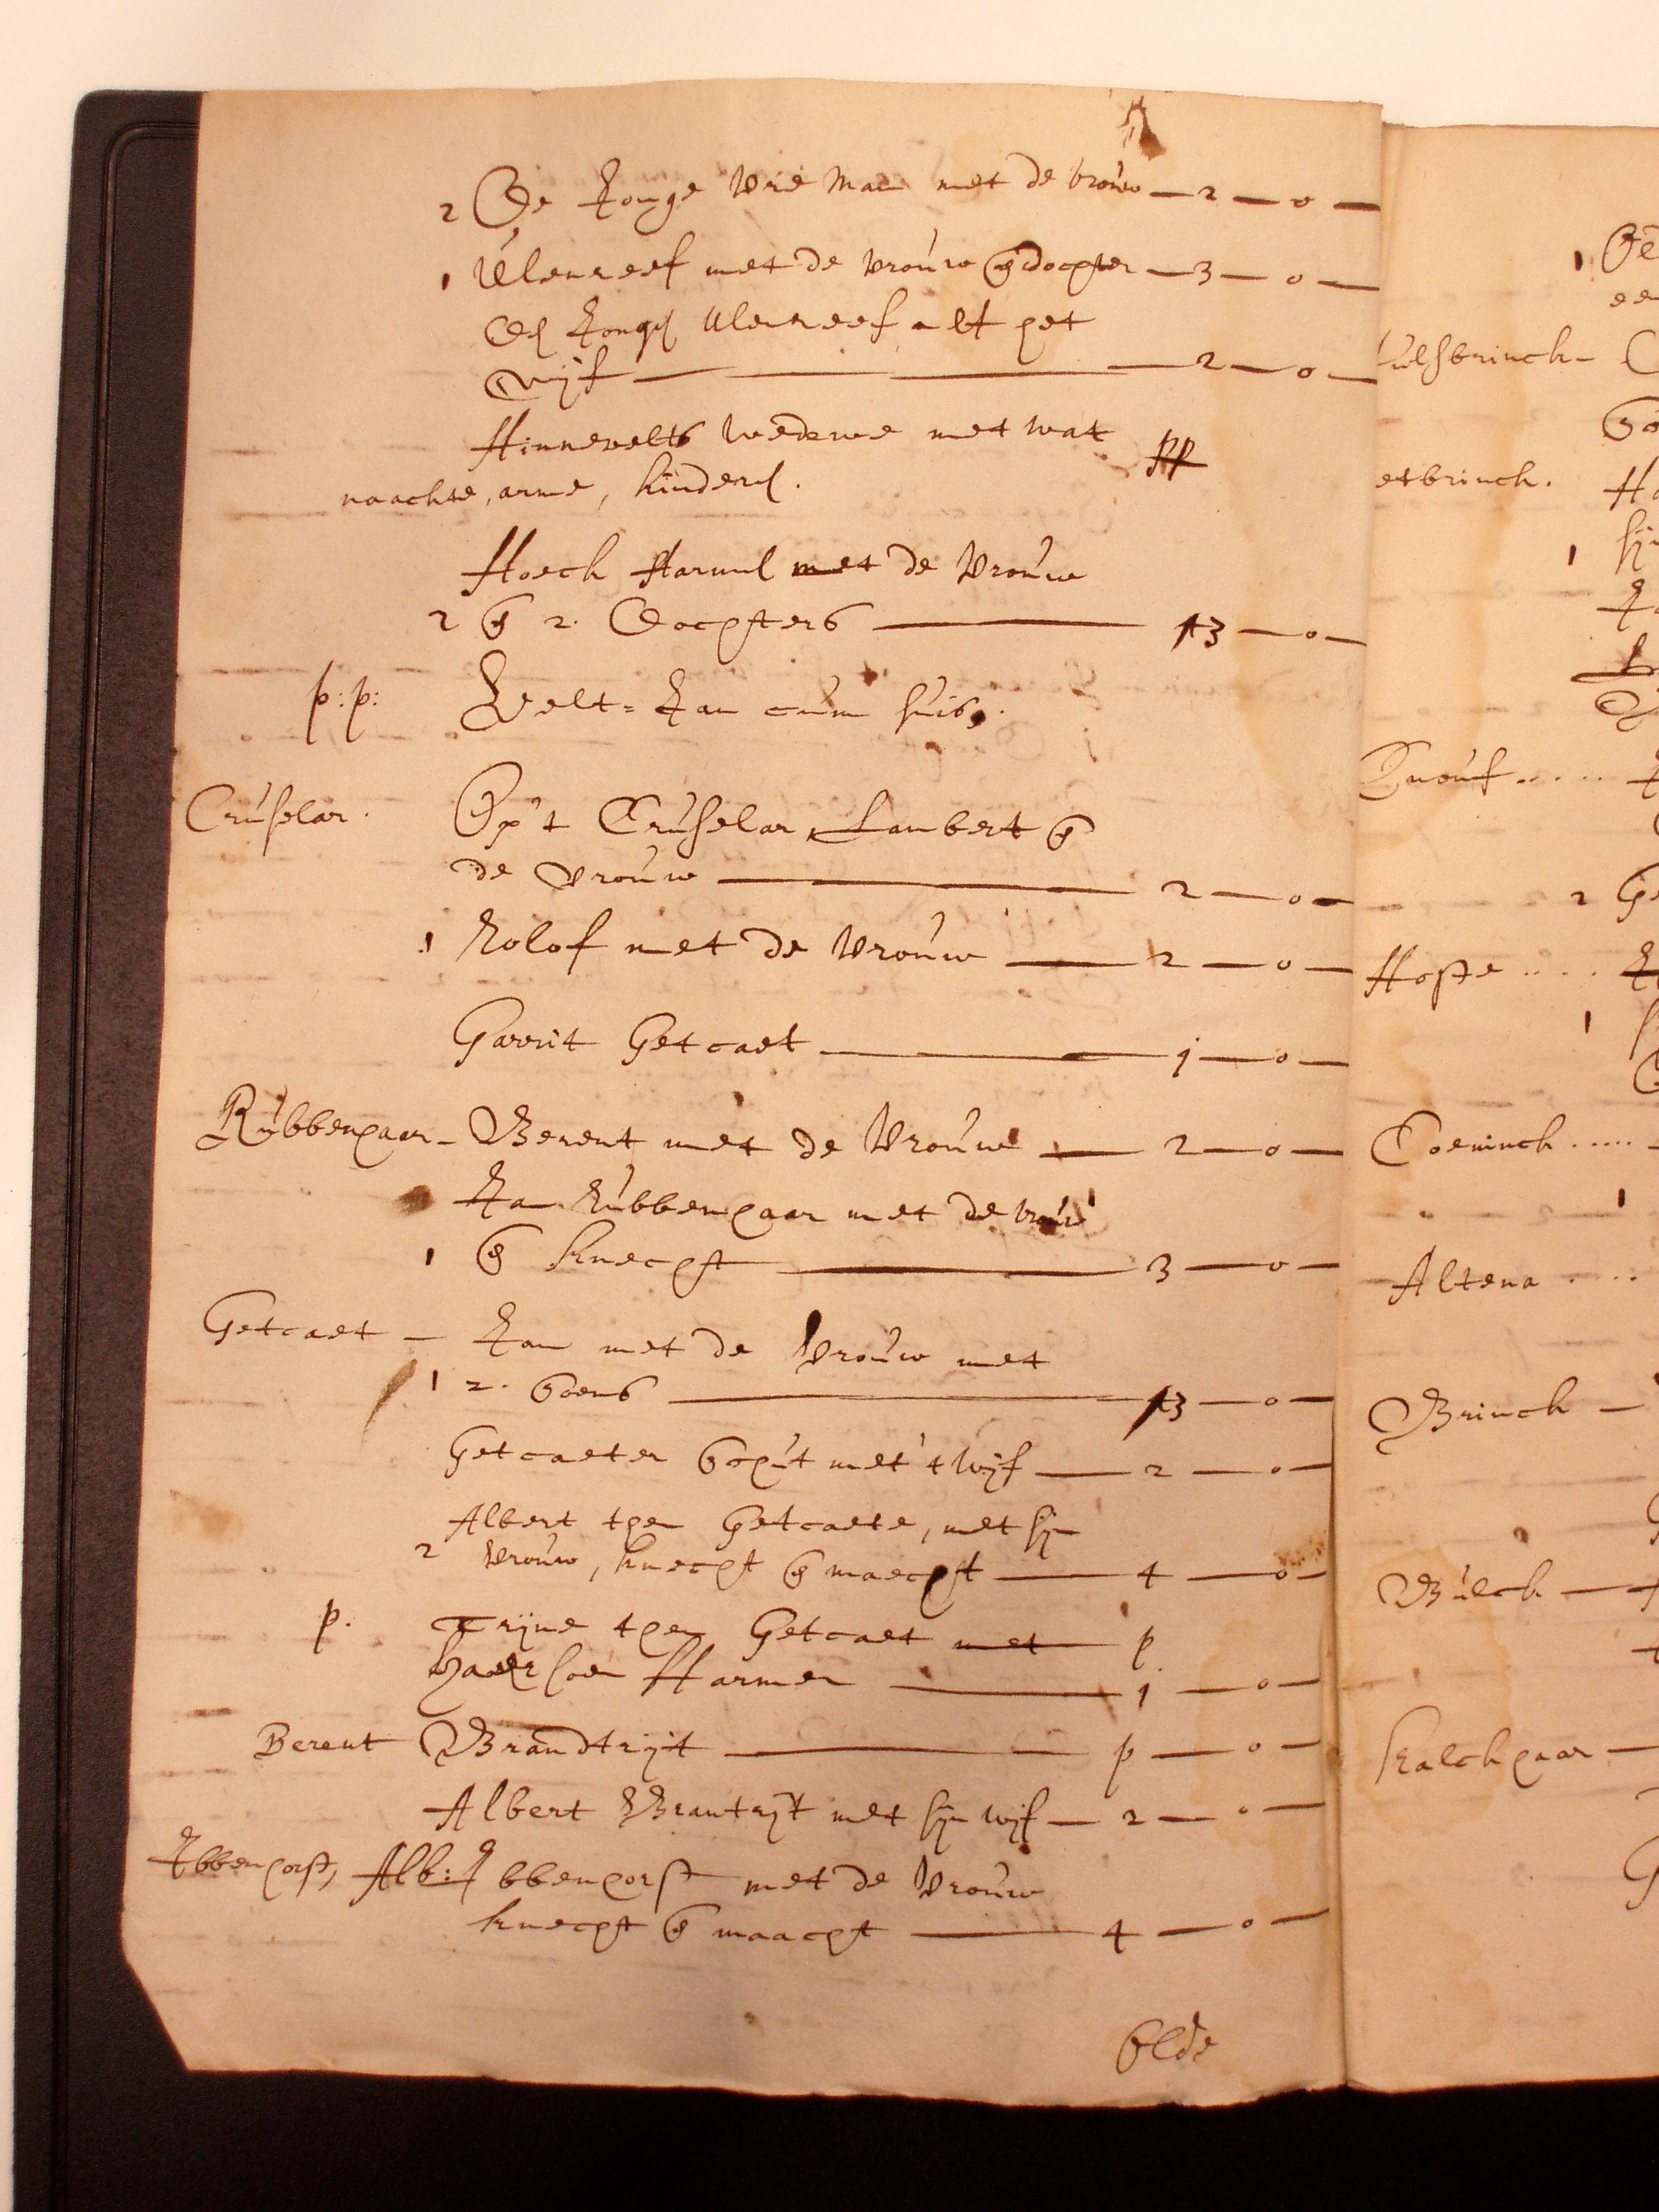 2 De Jonge Vrie man met de vrouw — 2 — 0 —
1 Ulenreef met de vrouw en dochter — 3 — 0 —
De Jonge Ulenreef alt het
Wijf — 2 — 0 —
Hinnevelts wedewe met wat pp
naackte, arme, kinder.
Hoech Harmen met de Vrouw
2 en 2. Dochters — 3 — 0 —
p:p: Velt= Jan cum suis.
Cruselar. Op't Cruselar, Lambert en
de Vrouw — 2 — 0 —
1 Rolof met de Vrouw — 2 — 0 —
Garrit Getcaet — 1 — 0 —
Rubbenhaar — Berent met de Vrouw — 2 — 0 —
Jan Rubbenhaar met de vrouw
1 en knecht — 3 — 0 —
Getcaet — Jan met de Vrouw met
1 2. soens — 3 — 0 —
Getcaeter met 't wijf — 2 — 0 —
Albert then Getcaete, met sijn
2 Vrouw, knecht en maecht — 4 — 0 —
p. Trijne then Getcaet met p
haer soen Harmen — 1 — 0 —
Berent Brandtrijt — p — 0 —
Albert Brantrijt met sijn wijf — 2 — 0 —
Ibbenhorst, Alb: Ibbenhorst met de Vrouw
knecht en maacht — 4 — 0 —
Olde
1
ulsbrinck —
etbrinck. Ha
1 sij
Knouf .....
2 Ge
Hoste ....
1
Coeninck .....
1
Altena ....
Brinck —
Bulck —
Kalckhaar —